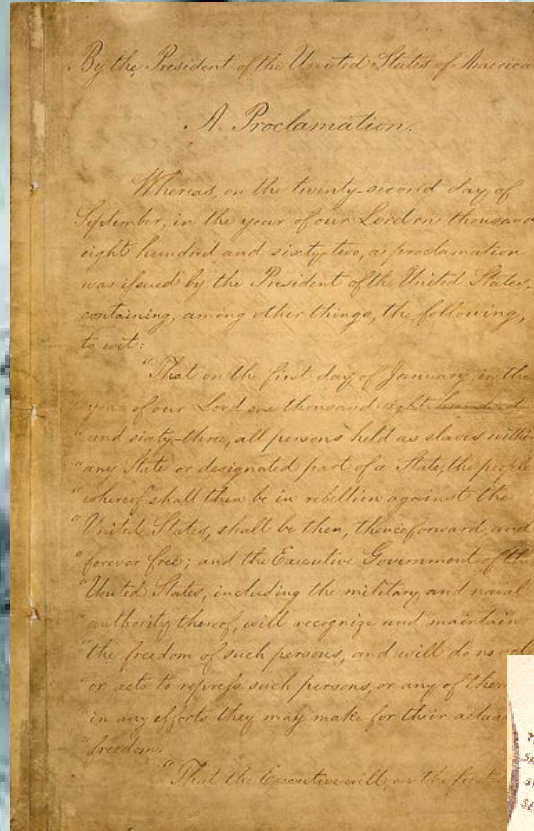 By the President of the United States of America
A Proclamation.
Whereas, on the twenty-second day of
September, in the year of our Lord one thousand
eight hundred and sixty-two, a proclamation
was issued by the President of the United States,
containing, among other things, the following,
to wit:
"That on the first day of January, in the
"year of our Lord one thousand eight hundred
"and sixty-three, all persons held as slaves within
"any State or designated part of a State, the people
"whereof shall then be in rebellion against the
"United States, shall be then, thenceforward, and
"forever free; and the Executive Government of the
"United States, including the military and naval
"authority thereof, will recognize and maintain
"the freedom of such persons, and will do no act
"or acts to repress such persons, or any of them,
"in any efforts they may make for their actual
"freedom.
"That the Executive will, on the first